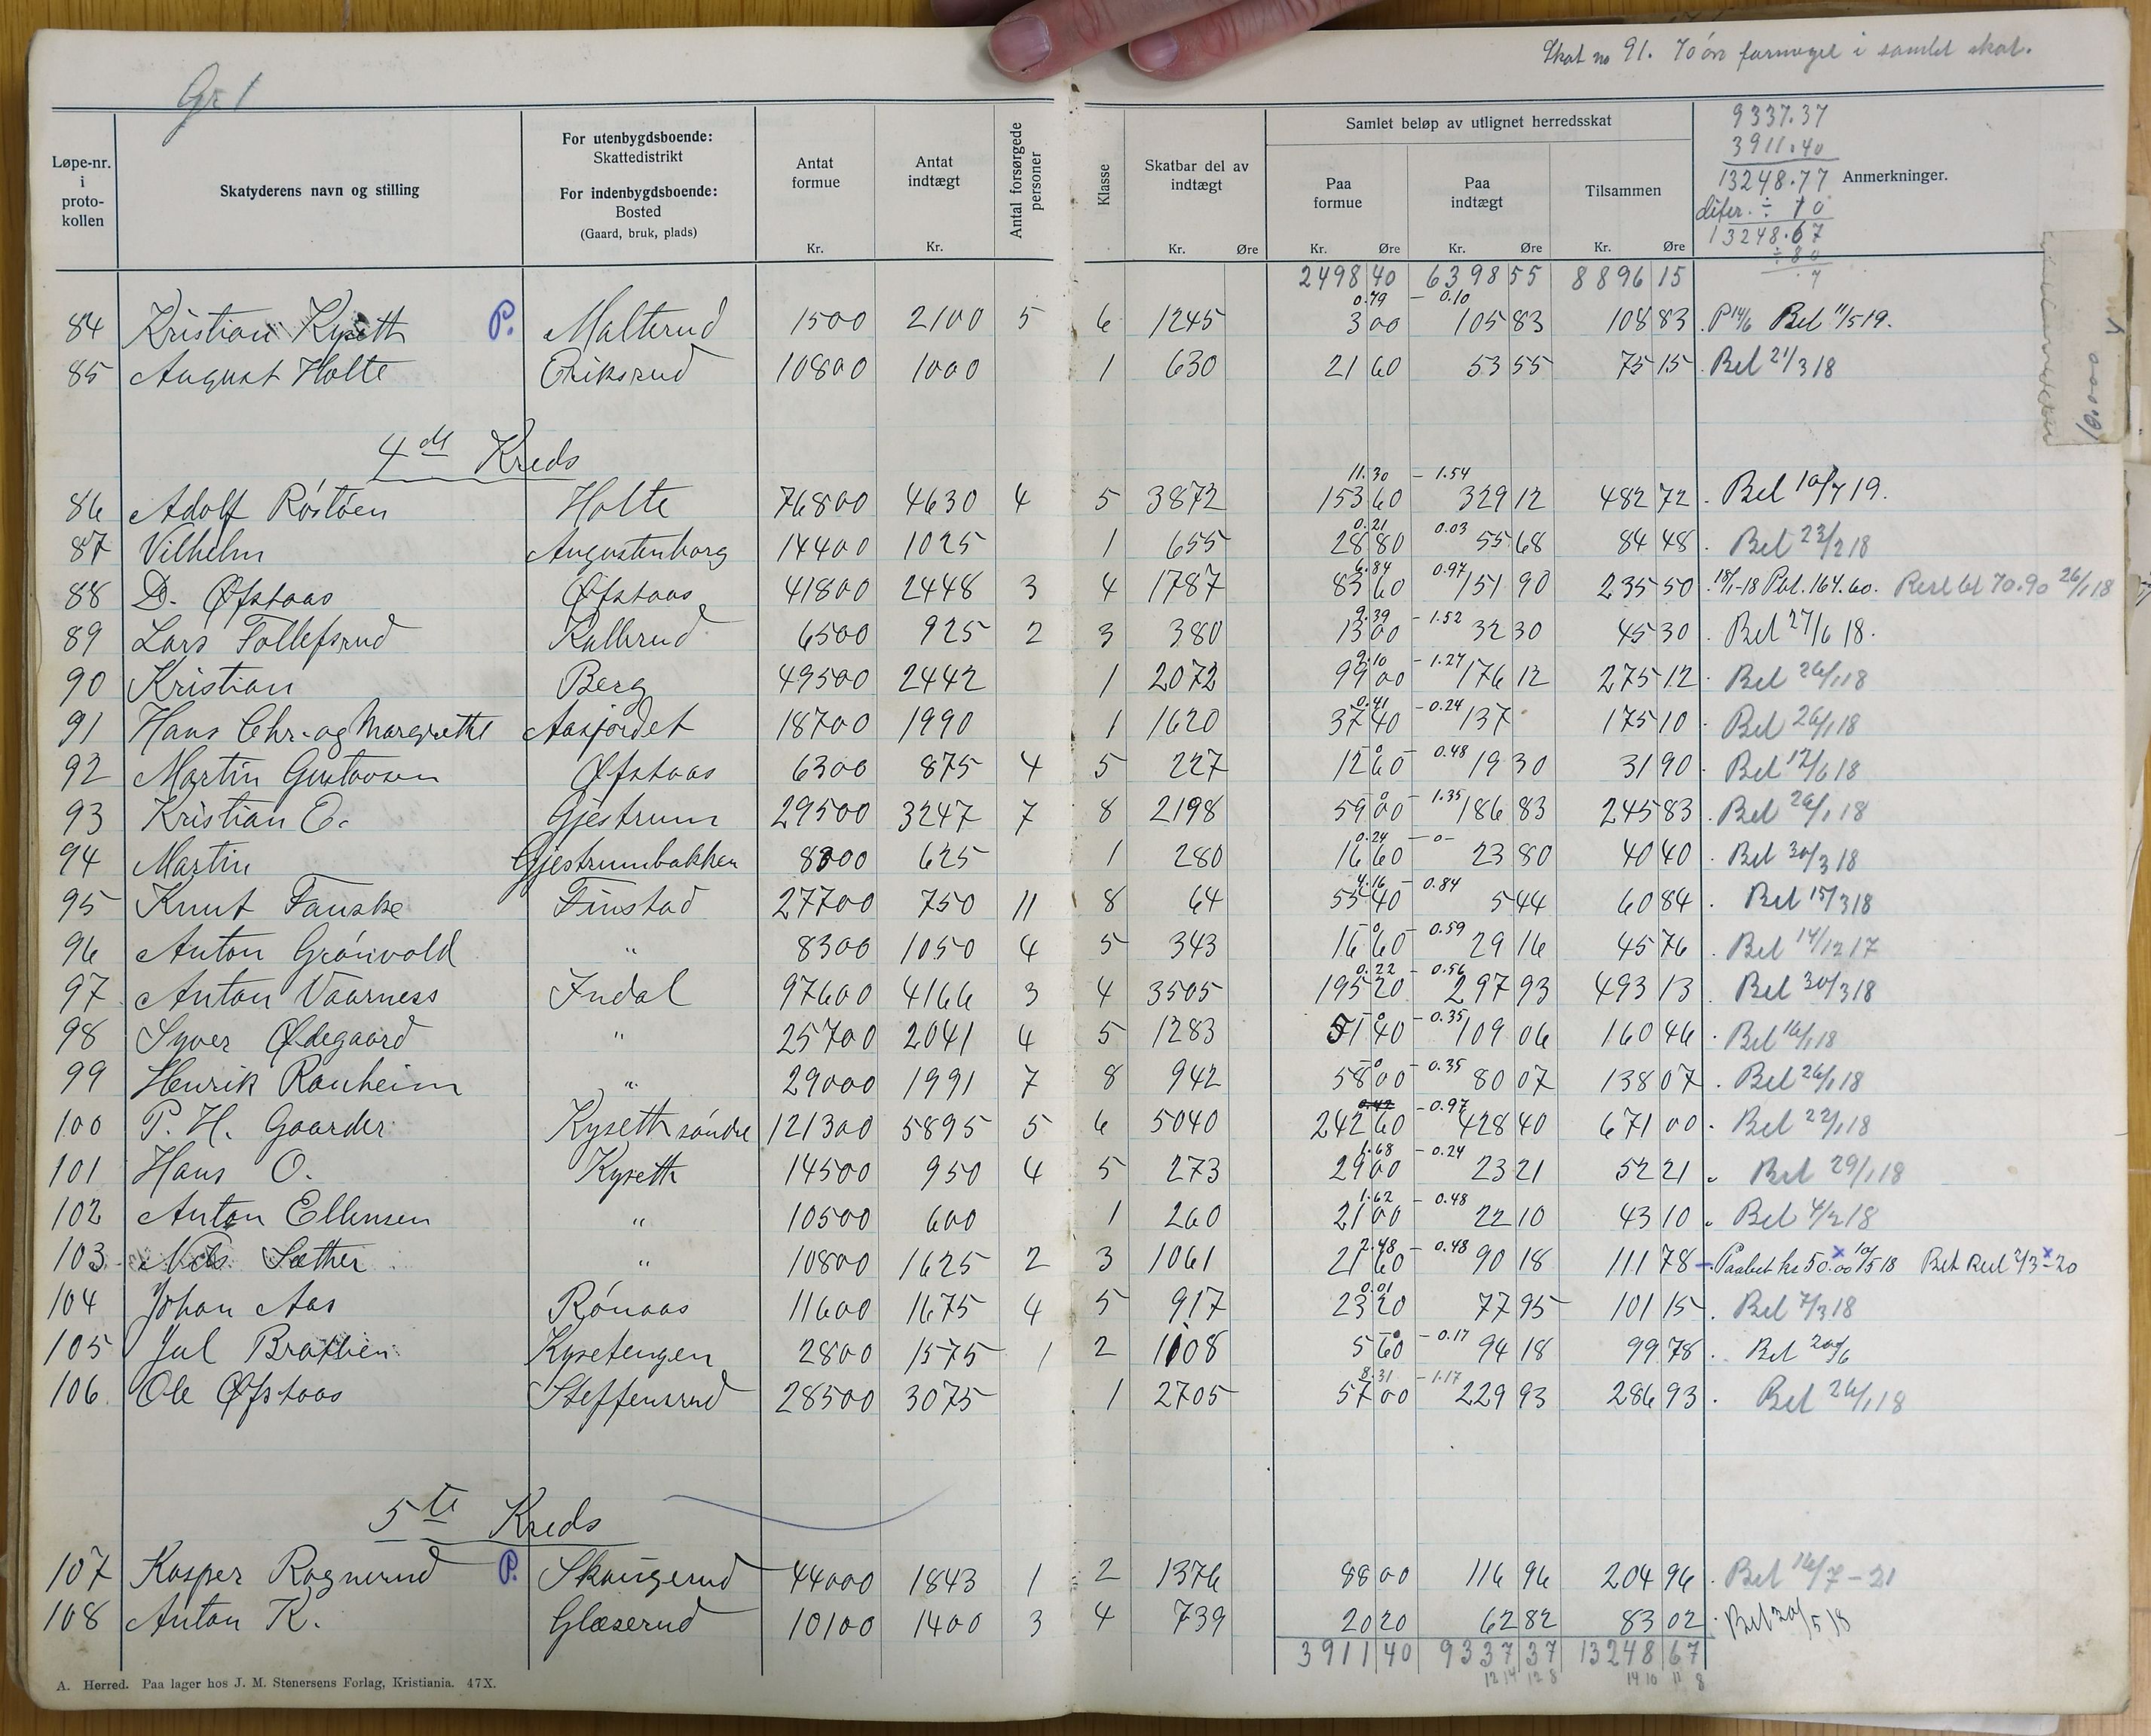 Gr 1
Skat no 91. 70 øre formeget i samlet skat.
Løpe-nr. i proto-kollen
Skatyderens navn og stilling
For utenbygdsboende: Skattedistrikt
For indenbygdsboende: Bosted (Gaard, bruk, plads)
Antat formue Kr.
Antat indtægt Kr.
Antal forsørgede personer
Klasse
Skatbar del av indtægt Kr. Øre
Samlet beløp av utlignet herredsskat
Paa formue Kr. Øre
Paa indtægt Kr. Øre
Tilsammen Kr. Øre
Anmerkninger.
9337.37
3911.40
13248.77
difer. ÷ 10
13248.67
2498 40 6398 55 8896 15
0.79 - 0.10
84 Kristian Kyseth P. Malterud 1500 2100 5 6 1245 3 00 105 83 108 83 P 14/6 Bel 11/5 19.
85 August Holte Eriksrud 10800 1000 1 630 21 60 53 55 75 15 Bel 21/3 18
4de Kreds
11.30 - 1.54
86 Adolf Röstöen Holte 76800 4630 4 5 3872 153 60 329 12 482 72 Bel 10/7 19.
0.21 0.03
87 Vilhelm Augustenborg 14400 1025 1 655 28 80 55 68 84 48 Bel 23/2 18
6.84 0.97
88 D. Øfstaas Øfstaas 41800 2448 3 4 1787 83 60 151 90 235 50 18/1-18 Bet. 164.60. Rest bl 70.90 26/1 18
9.39 - 1.52
89 Lars Tollefsrud Kalbrud 6500 925 2 3 380 13 00 32 30 45 30 Bel 27/6 18.
9.10 - 1.27
90 Kristian Berg 49500 2442 1 2072 99 00 176 12 275 12 Bel 26/1 18
0.41 - 0.24
91 Hans Chr. og Margrethe Aasjordet 18700 1990 1 1620 37 40 137 175 10 Bel 26/1 18
0 - 0.48
92 Martin Gustavsen Øfstaas 6300 875 4 5 227 12 60 19 30 31 90 Bel 12/6 18
0 - 1.35
93 Kristian E. Gjestrum 29500 3247 7 8 2198 59 00 186 83 245 83 Bel 26/1 18
0.24 - 0 -
94 Martin Gjestrumbakken 8300 625 1 280 16 60 23 80 40 40 Bel 30/3 18
4.16 - 0.84
95 Knut Fauske Finstad 27700 750 11 8 64 55 40 5 44 60 84 Bel 15/3 18
0 - 0.59
96 Anton Grönvold " 8300 1050 4 5 343 16 60 29 16 45 76 Bel 14/12 17
0.22 - 0.56
97 Anton Vaarness Indal 97600 4166 3 4 3505 195 20 297 93 493 13 Bel 30/3 18
0 - 0.35
98 Syver Ødegaard " 25700 2041 4 5 1283 51 40 109 06 160 46 Bel 16/1 18
0 - 0.35
99 Henrik Ranheim " 29000 1991 7 8 942 58 00 80 07 138 07 Bel 26/1 18
0.42 - 0.97
100 P. H. Gaarder Kyseth söndre 121300 5895 5 6 5040 242 60 428 40 671 00 Bel 22/1 18
1.68 - 0.24
101 Hans O. Kyseth 14500 950 4 5 273 29 00 23 21 52 21 Bel 29/1 18
1.62 - 0.48
102 Anton Ellensen " 10500 600 1 260 21 00 22 10 43 10 Bel 4/2 18
2.48 - 0.48
103 Nils Sæther " 10800 1625 2 3 1061 21 60 90 18 111 78 Paabet kr 50.00 10/5 18 Bet Rest 2/3-20
0.01
104 Johan Aas Rönaas 11600 1675 4 5 917 23 20 77 95 101 15 Bel 7/3 18
0 - 0.17
105 Jul Bratlien Kysetengen 2800 1575 1 2 1108 5 60 94 18 99 78 Bel 20/6
8.31 - 1.17
106 Ole Øfstaas Steffensrud 28500 3075 1 2705 57 00 229 93 286 93 Bel 26/1 18
5te Kreds
107 Kasper Rognerud P. Skaugerud 44000 1843 1 2 1376 88 00 116 96 204 96 Bel 16/7-21
108 Anton K. Glæserud 10100 1400 3 4 739 20 20 62 82 83 02 Bel 30/5 18
3911 40 9337 37 13248 67
12 14 12 8 14 10 11 8
A. Herred. Paa lager hos J. M. Stenersens Forlag, Kristiania. 47X.